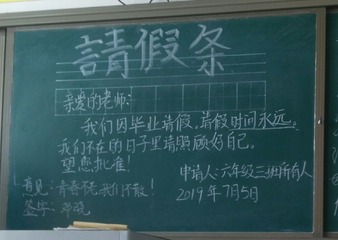 請假条
亲爱的老师:
我们因毕业请假,请假时间永远。
我们不在的日子里请照顾好自己。
望您批准!
申请人:六年级三班所有人
2019年7月5日
意见:青春不老,我们不散!
签字: